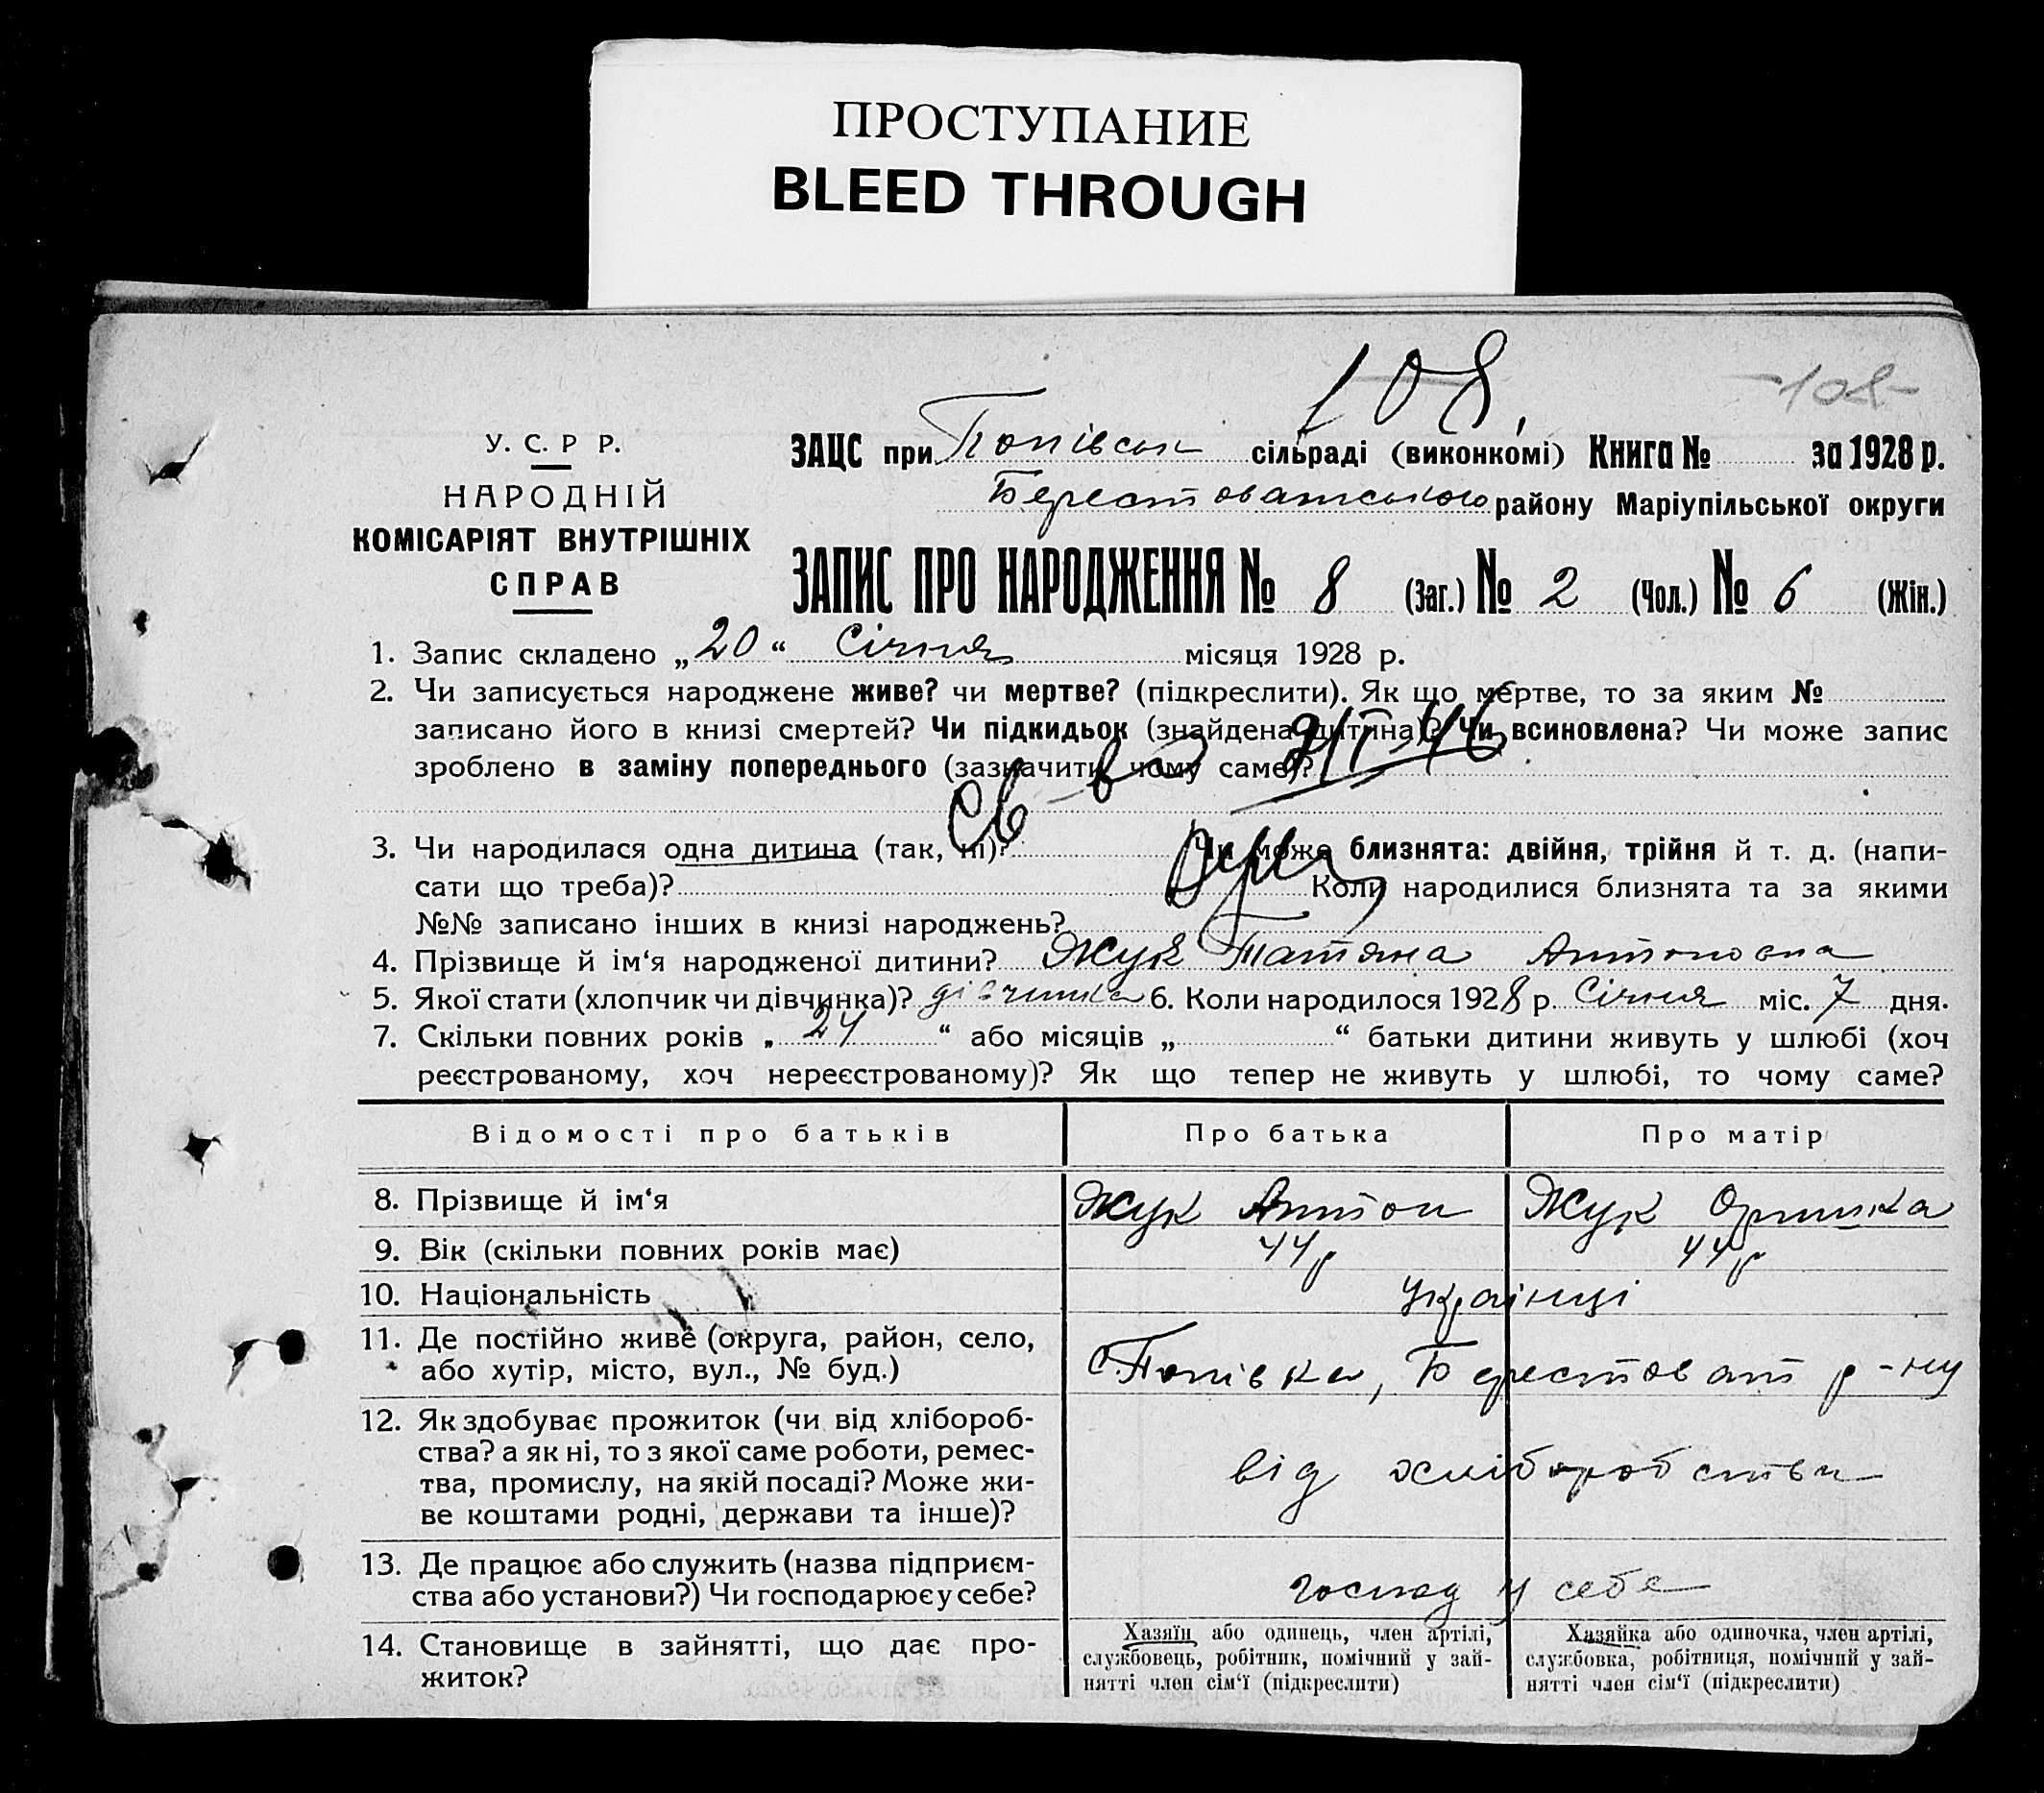 ПРОСТУПАНИЕ
BLEED THROUGH
108.
-108-
У. С. Р Р.
НАРОДНІЙ
КОМІСАРІЯТ ВНУТРІШНІХ
СПРАВ
ЗАЦС при Попівськ сільраді (виконкомі) Книга № за 1928 р.
Берестоватського району Маріупільської округи
ЗАПИС ПРО НАРОДЖЕННЯ № 8 (Заг.) № 2 (Чол.) № 6 (Жін.)
1. Запис складено „20“ Січня місяця 1928 р.
2. Чи записується народжене живе? чи мертве? (підкреслити). Як що мертве, то за яким №
записано його в книзі смертей? Чи підкидьок (знайдена дитина)? Чи всиновлена? Чи може запис
зроблено в заміну попереднього (зазначити чому саме)?
Св-во
3. Чи народилася одна дитина (так, ні)? Чи може близнята: двійня, трійня й т. д. (напи-
сати що треба)? Коли народилися близнята та за якими
№№ записано інших в книзі народжень?
4. Прізвище й ім‘я народженої дитини? Жук Татяна Антоновна
5. Якої стати (хлопчик чи дівчинка)? дівчинка 6. Коли народилось 1928 р. Січня міс. 7 дня.
7. Скільки повних років „ 24 “ або місяців „ “ батьки дитини живуть у шлюбі (хоч
реєстрованому, хоч нереєстрованому)? Як що тепер не живуть у шлюбі, то чому саме?
Відомості про батьків Про батька Про матір
8. Прізвище й ім‘я Жук Антон Жук Оришка
9. Вік (скільки повних років має) 44 р 44 р
10. Національність Українці
11. Де постійно живе (округа, район, село,
або хутір, місто, вул., № буд.) с. Попівка, Берестоват р-ну
12. Як здобуває прожиток (чи від хлібороб-
ства? а як ні, то з якої саме роботи, ремес-
тва, промислу, на якій посаді? Може жи-
ве коштами родні, держави та інше)?
від хліборобства
13. Де працює або служить (назва підприєм-
ства або установи?) Чи господарює у себе?
господ у себе
14. Становище в зайнятті, що дає про-
житок?
Хазяїн або одинець, член артілі,
службовець, робітник, помічний у зай-
нятті член сім‘ї (підкреслити)
Хазяйка або одиночка, член артілі,
службовка, робітниця, помічний у зай-
нятті член сім‘ї (підкреслити)